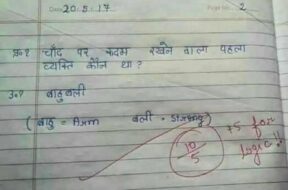 Date 20.5.17
Page No. 2
प्र०१ चाँद पर कदम रखने वाला पहला
व्यक्ति कौन था ?
उ०१ बाहुबली
( बाहु = Arm बली = Strong )
10/5
+5 for
logic !!